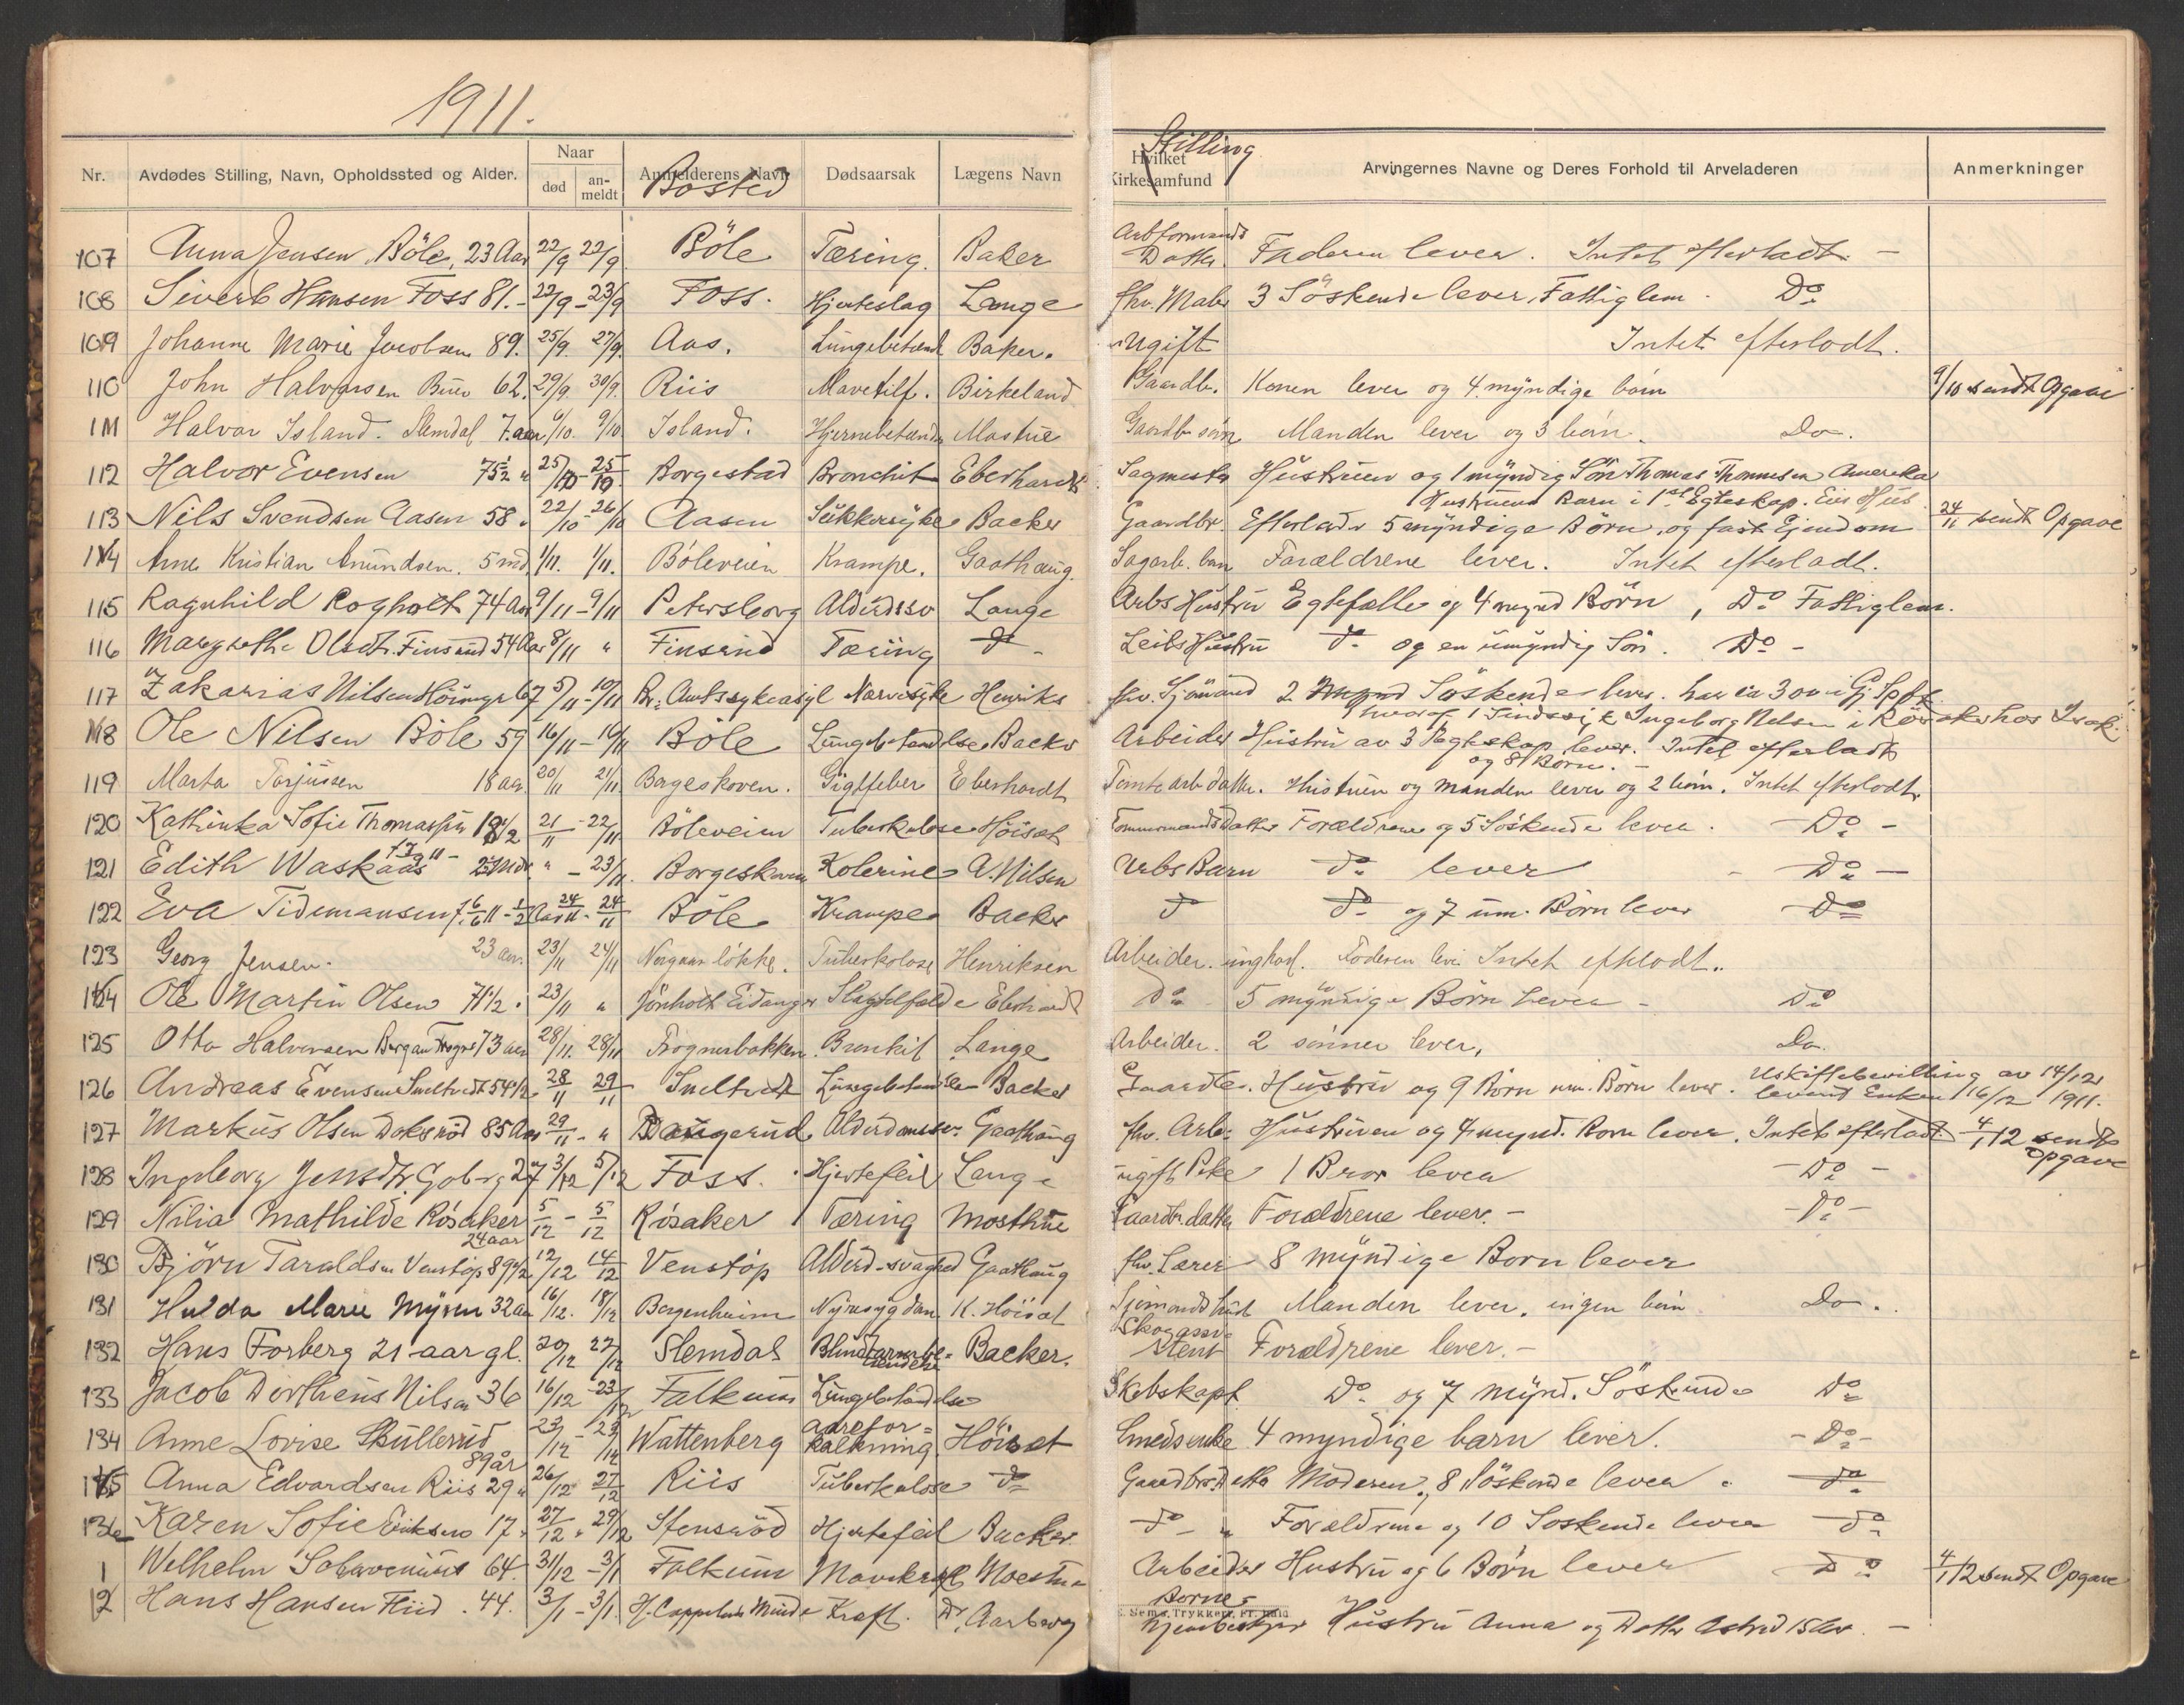 1911.
Nr. Avdødes Stilling, Navn, Opholdssted og Alder. Naar død an-meldt Anmelderens Navn Bosted Dødsaarsak Lægens Navn Hvilket Kirkesamfund Stilling Arvingernes Navne og Deres Forhold til Arveladeren Anmerkninger
107 Anna Jensen Böle, 23 Aar 22/9 22/9 Böle Tæring. Baker Arbformands Datter. Faderen lever. Intet efterladt. -
108 Sivert Hansen Foss 81. - 22/9 - 23/9 Foss. Hjerteslag Lange fhv. Maler 3 Söskende lever, Fattiglem. Do
109 Johanne Marie Jacobsen 89. 25/9. 27/9. Aas. Lungebetænd Baker. Ugift Intet efterladt.
110 John Halvorsen 62. 29/9. 30/9. Riis Mavetilf. Birkeland Gaardbr. Konen lever og 4 myndige börn 9/10 sendt Opgave
111 Halvor Island. Slemdal 7. aar 6/10. 9/10 Island. Hjernebetænd Mostue Gaardbr sön Manden lever og 3 börn. Do.
112 Halvor Evensen 75 1/2 " 25/10 - 25/10. Borgestad Bronchit Eberhardt. Sagmester Hustruen og 1 myndig Sön Thomas Thommesen Amerika
Hustruens Barn i 1ste Egteskap. Eier Hus
113 Nils Svendsen Aasen 58 " 22/10 - 26/10 Aasen Sukkersyke Backer Gaardbr. Efterlader 5 myndige Börn, og fast Ejendom 24/11 sendt Opgave
114 Arne Kristian Amundsen. 5 md. 1/11. 1/11. Böleveien Krampe. Gaathaug. Sagarb. barn Forældrene lever. Intet efterladt.
115 Ragnhild Rogholt 74 Aar 9/11 - 9/11 Petersborg Alderdssv Lange Arbs Hustru Egtefælle og 4 mynd Börn, Do Fattiglem.
116 Margrethe Olsdtr. Finsrud 54 Aar 8/11 " Finsrud Tæring do - Leibs Hustru do og en umyndig Sön. Do -
117 Zakarias Nilsen 67 5/11 - 10/11 Br: Amtssykeasyl Nervesyke Henriks fhv. Sjömand 2 Söskende lever. har ca 300 i Gj. Spbk
hvoraf 1 Sindssyk Ingeborg Nilsen i Rösaker hos Isak.
118 Ole Nilsen Böle 59 16/11 - 19/11 Böle Lungebetændlse Backer Arbeider Hustru av 3 Egteskap lever. Intet efterladt
og 8 Börn. -
119 Marta Torjussen 18 aar. 20/11 21/11 Borgeskoven. Gigtfeber Eberhardt Tomtearb datter. Hustruen og manden lever og 2 börn. Intet efterladt.
120 Kathinka Sofie Thomassen 19 1/2 21/11 - 22/11 Böleveien Tuberkulose Höisæt Tömmermands Datter Forældrene og 5 Söskende lever. - Do -
121 Edith Waskaas " - 23/11. Borgeskoven Kolerine A. Nilsen Arbs Barn do lever - Do -
122 Eva Tidemansen f. 6/6 11 - 1/2 Aar 24/11 - 24/11 Böle Krampe Backer do do og 7 um. Börn lever Do
123 Georg Jensen. 23 aar. 23/11 24/11 lökke. Tuberkolose Henriksen Arbeider. ungkarl. Faderen lever Intet efterladt.
124 Ole Martin Olsen 71 1/2. 23/11 " Jönholt Eidanger Slagtilfælde Eberhardt Do 5 myndige Börn lever - Do
125 Otto Halvorsen 73 aar 28/11. 28/11 Frognerbakken. Bronkit Lange Arbeider. 2 sönner lever, Do.
126 Andreas Evensen Sneltvedt 54 1/2 28/11 29/11 Sneltvedt Lungebetændelse Backer Gaardbr. Hustru og 9 Börn um. Börn lever. Uskiftebevilling av 14/12
levert Enken 16/12 1911.
127 Markus Olsen Doksröd 85 Aar 29/11 - " Baugerud Alderdomssv. Gaathaug fhv. Arb: Hustruen og 4 mynd. Born lever. Intet efterladt 4/1 12 sendt Opgave
128 Ingeborg Jensdtr 27 3/12 5/12 Foss. Hjertefeil Lange ugift Pike 1 Bror lever - Do -
129 Nilia Mathilde Rösaker 24 aar 5/12 - 5/12 Rösaker Tæring Mosthue Gaardbr. datter Forældrene lever. - - Do -
130 Björn Taraldsen Venstöp 89 1/2 12/12 14/12 Venstöp Alderdsvaghed Gaathaug fhv. Lærer 8 myndige Born lever
131 Hulda Marie Myren 32 aar 16/12. 18/12 Borgenheim Nyresygdom K. Höisæt Sjömands hust Manden lever. ingen börn Do.
132 Hans Forberg 21 aar gl. 20/12 22/12 Slemdal Blindtarmbe-tændelse Backer. Skogassi-stent Forældrene lever. -
133 Jacob Dortheus Nilsen 36 16/12 - 23/12 Falkum Lungebetændelse Skibskapt Do. og 7 mynd. Söskende Do
134 Anne Lovise Skullerud 89 år 23/12 - 23/12 Wattenberg aarefor=kalkning Höisæt Smedsenke 4 myndige barn lever. - Do -
135 Anna Edvardsen Riis 29 " 26/12 27/12 Riis Tuberkulose do Gaardbrs Datter Moderen, 8 Söskende lever. do
136 Karen Sofie Eriksen 17 " 27/12 " 29/12 Stensröd Hjertefeil Backer. do - " Forældrene og 10 Soskende lever do
1 Welhelm 64 31/12 - 3/1 Falkum Mavekræft Moestue Arbeider Hustru og 6 Börn lever Do 4/1 12 sendt Opgave
2 Hans Hansen Fliid. 44. 3/1 - 3/1 H. Cappelens Minde Kræft. Dr. Aarberg Hustru Anna og Datter Astrid 15 Aar. -